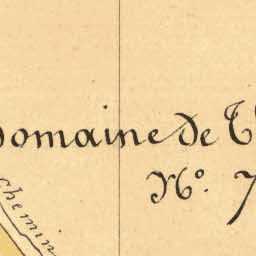 Domaine de
N.º 7
Chemin